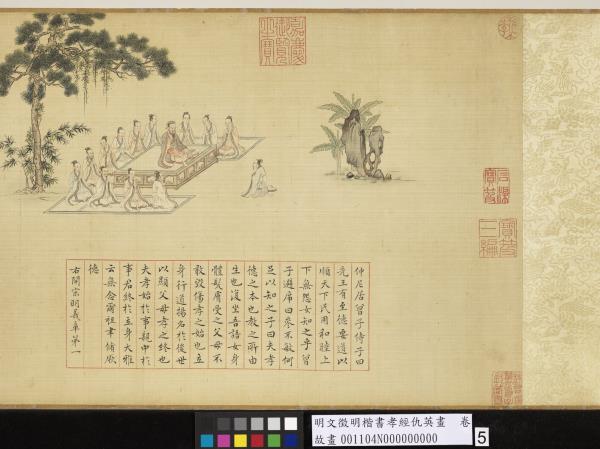 嘉慶御覽之寶
石渠寶笈
寶笈三編
仲尼居曾子侍子曰
先王有至德要道以
順天下民用和睦上
下無怨女知之乎曾
子避席曰參不敏何
足以知之子曰夫孝
德之本也教之所由
生也復坐吾語女身
體髮膚受之父母不
敢毀傷孝之始也立
身行道揚名於後世
以顯父母孝之終也
夫孝始於事親中於
事君終於立身大雅
云無念爾祖聿脩厥
德
右開宗明義章第一
明文徵明楷書孝經仇英畫 卷
故畫 001104N000000000
5